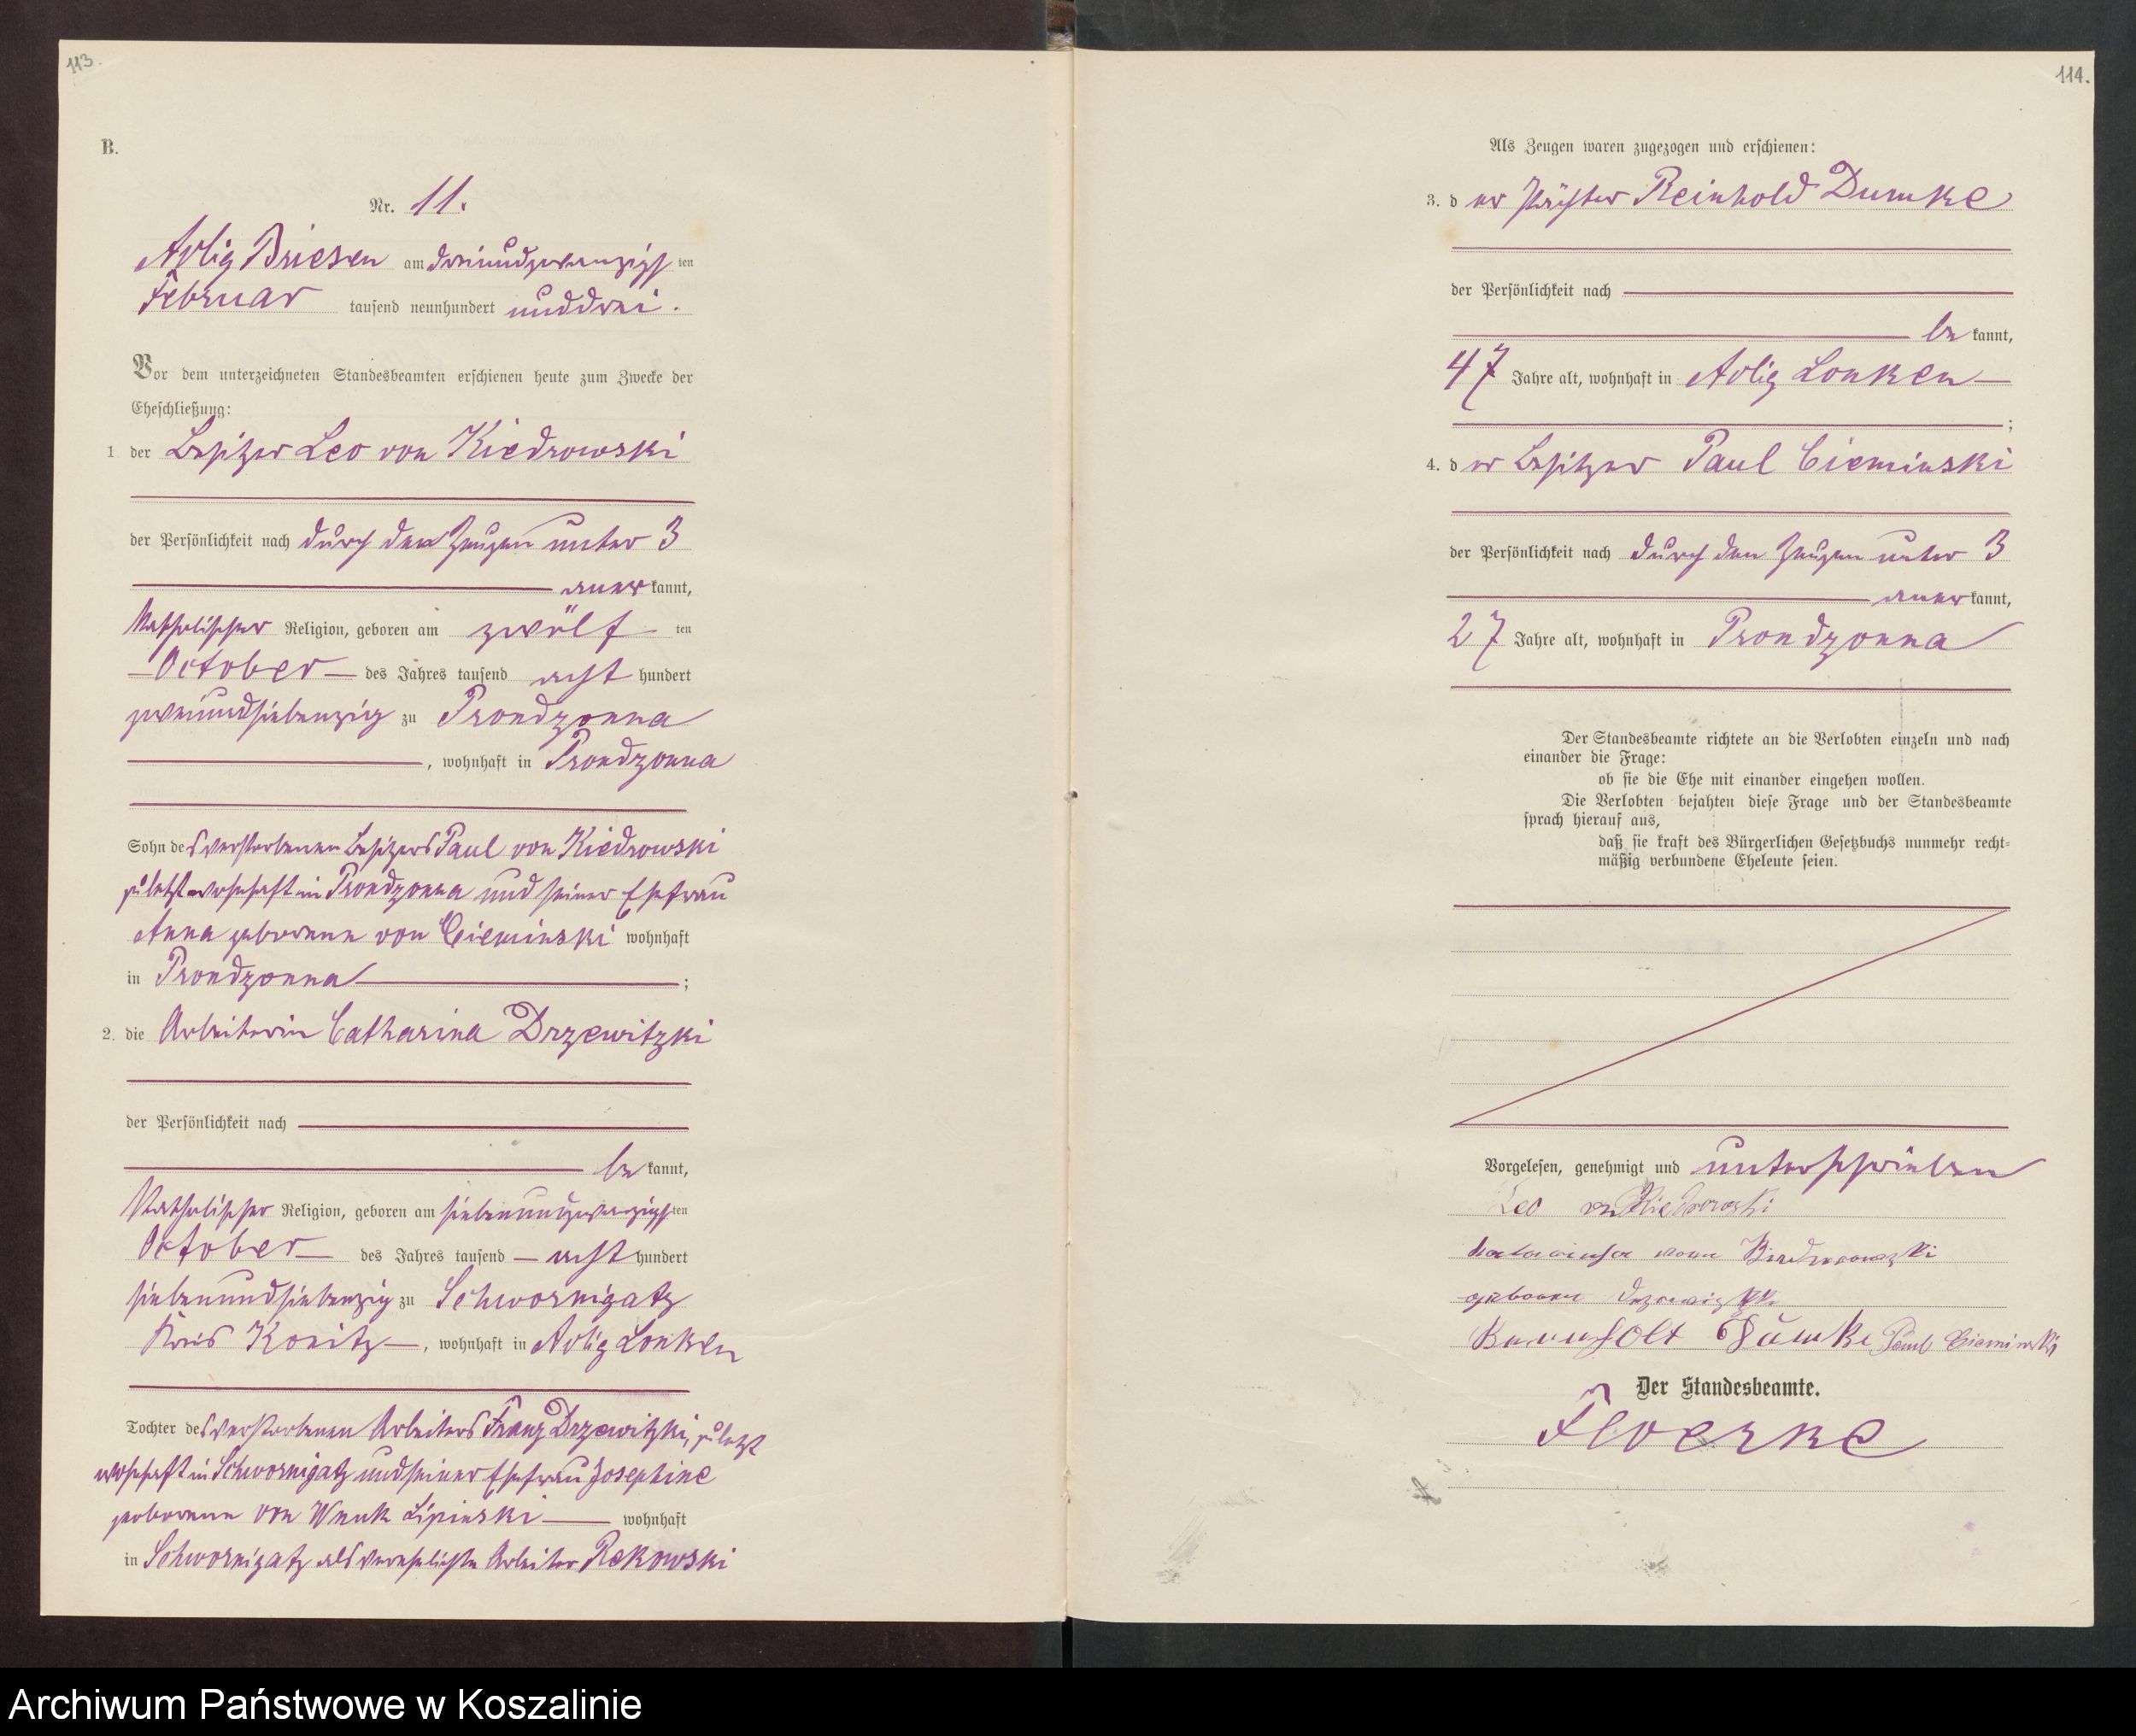 113.
B.
Nr. 11.
Adlig Briesen am dreiundzwanzigsten
Februar tausend neunhundert unddrei.
Vor dem unterzeichneten Standesbeamten erschienen heute zum Zwecke der
Eheschließung:
1 der Besitzer Leo von Kiedrowski
der Persönlichkeit nach durch den Zeugen unter 3
anerkannt,
katholischer Religion, geboren am zwölften
October des Jahres tausend achthundert
zweiundsiebenzig zu Prondzonna
, wohnhaft in Prondzonna
Sohn des verstorbenen Besitzers Paul von Kiedrowski
zuletzt wohnhaft in Prondzonna und seiner Ehefrau
Anna geborenen von Cieminski wohnhaft
in Prondzonna ;
2. die Arbeiterin Catharina Drzewitzki
der Persönlichkeit nach
bekannt,
katholischer Religion, geboren am siebenundzwanzigsten
October des Jahres tausend achthundert
siebenundsiebenzig zu Schwornigatz
Kreis Konitz, wohnhaft in Adlig Lonken
Tochter des verstorbenen Arbeiters Franz Drzewitzki, zuletzt
wohnhaft in Schwornigatz und seiner Ehefrau Josephine
geborenen von Wnuk Lipinski wohnhaft
in Schwornigatz als verehelichte Arbeiter Rekowski
114.
Als Zeugen waren zugezogen und erschienen:
3. der Pächter Reinhold Dumke
der Persönlichkeit nach
bekannt,
47 Jahre alt, wohnhaft in Adlig Lonken
;
4. der Besitzer Paul Cieminski
der Persönlichkeit nach durch den Zeugen unter 3
anerkannt,
27 Jahre alt, wohnhaft in Prondzonna
Der Standesbeamte richtete an die Verlobten einzeln und nach
einander die Frage:
ob sie die Ehe mit einander eingehen wollen.
Die Verlobten bejahten diese Frage und der Standesbeamte
sprach hierauf aus,
daß sie kraft des Bürgerlichen Gesetzbuchs nunmehr recht-
mäßig verbundene Eheleute seien.
Vorgelesen, genehmigt und unterschrieben
Leo von Kiedrowski
von
Paul Cieminski
Der Standesbeamte.
Floerke
Archiwum Państwowe w Koszalinie